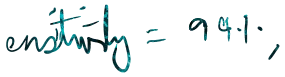 ensitivity = 94%,